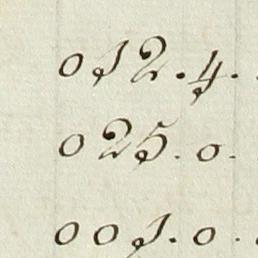 012.4.
025.0.
001.0.